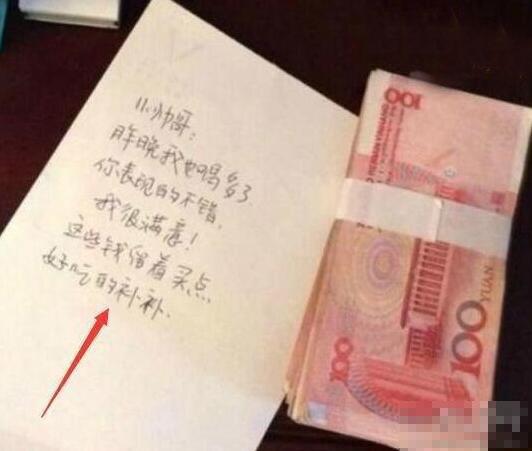 小帅哥:
昨晚我也喝多了
你表现的不错,
我很满意!
这些钱留着买点
好吃的补补.
100
100
100
YUAN